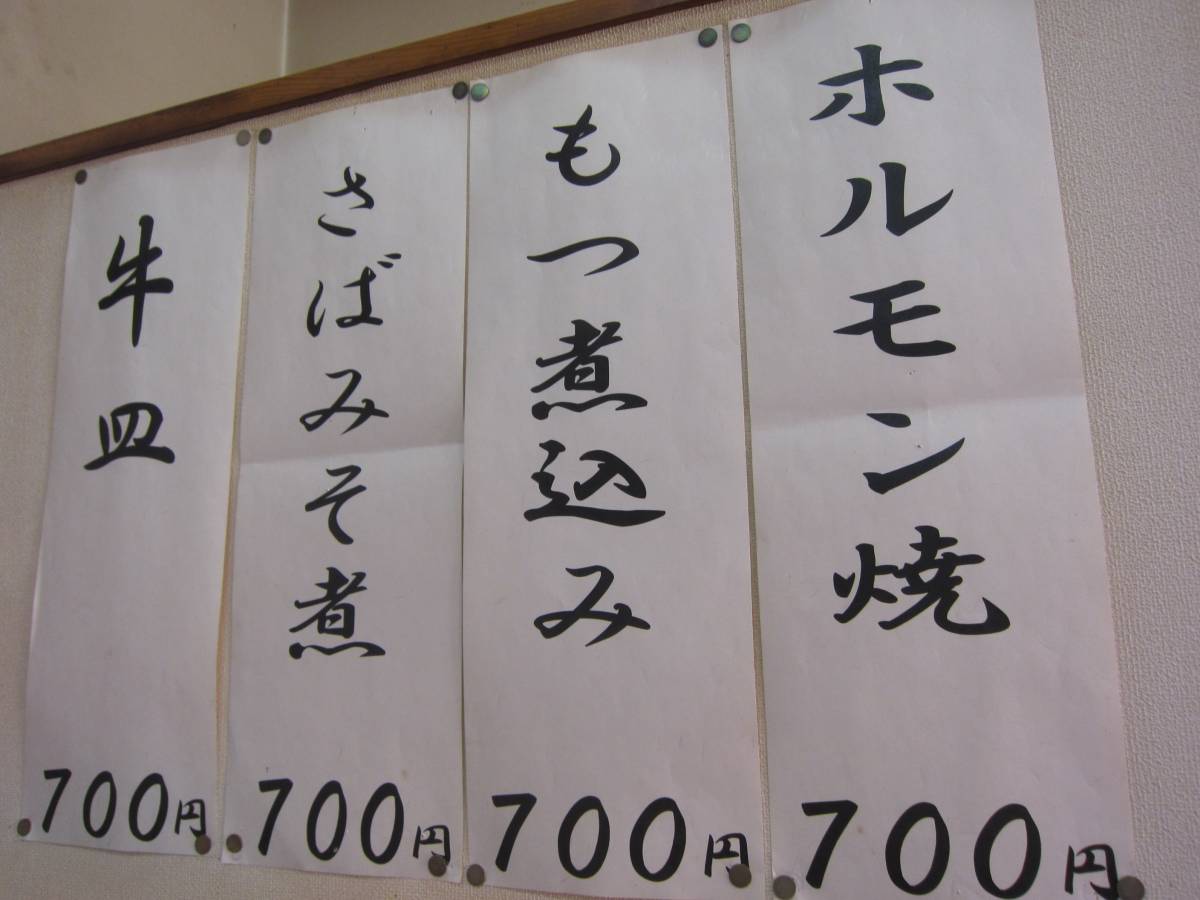 ホルモン焼
700円
もつ煮込み
700円
さばみそ煮
700円
牛皿
700円